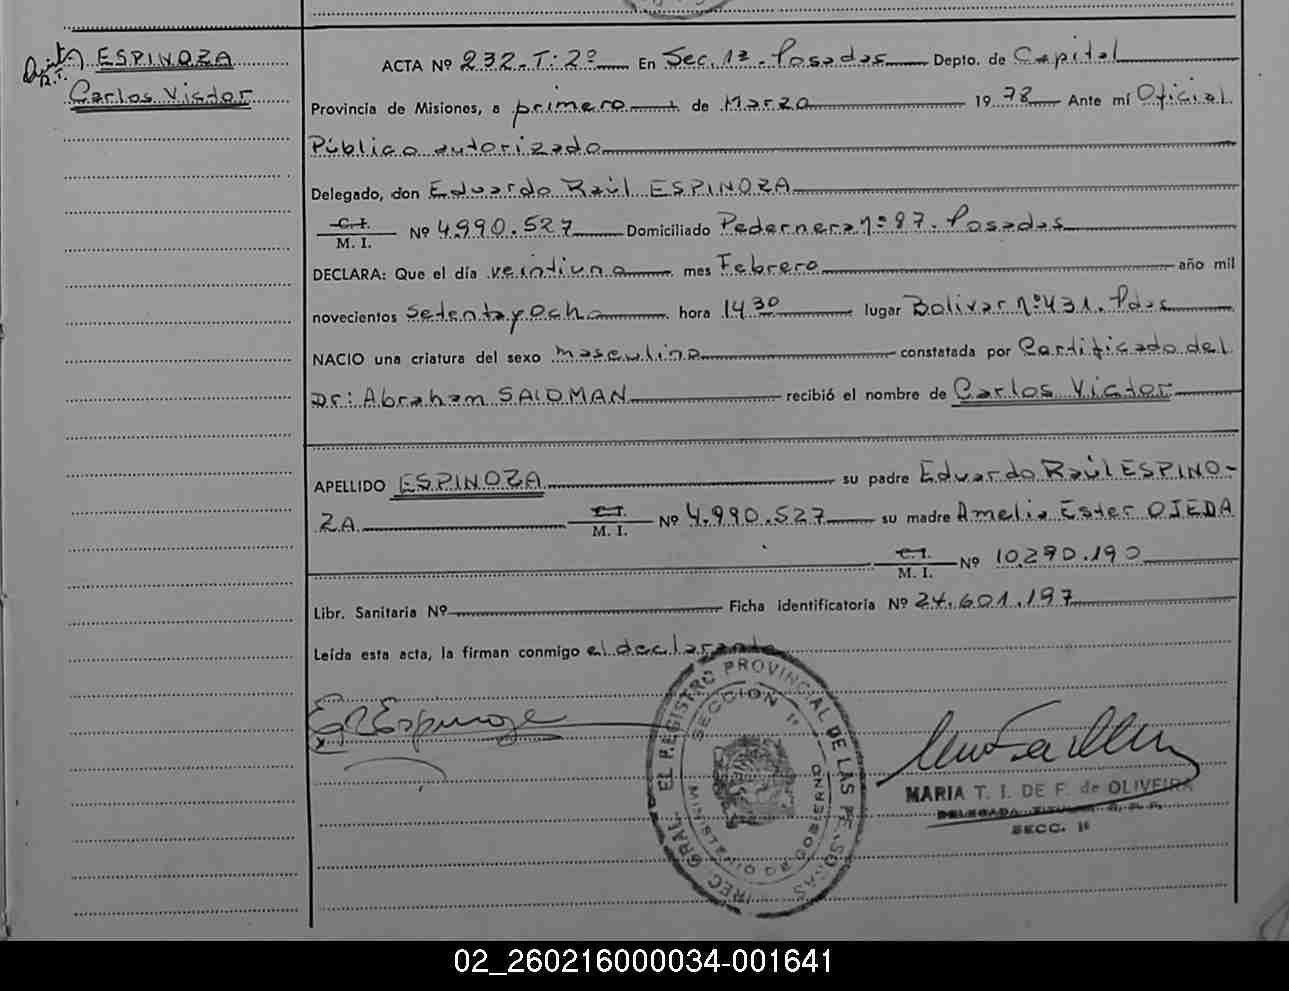 ESPINOZA
Carlos Victor
ACTA Nº 232. T: 2º En Sec. 1ª. Posadas Depto. de Capital
Provincia de Misiones, a primero de Marzo 1978 Ante mí Oficial
Público autorizado
Delegado, don Eduardo Raúl ESPINOZA
C. I.
M. I. Nº 4.990.527 Domiciliado Pedernera nº: 87. Posadas
DECLARA: Que el día veintiuno mes Febrero año mil
novecientos Setenta y Ocho hora 14 30 lugar Bolivar nº: 431. Pdas
NACIO una criatura del sexo masculino constatada por Certificado del
Dr: Abraham SAIDMAN recibió el nombre de Carlos Victor
APELLIDO ESPINOZA su padre Eduardo Raúl ESPINO-
ZA C. I.
M. I. Nº 4.990.527 su madre Amelia Ester OJEDA
C. I.
M. I. Nº 10.290.190
Libr. Sanitaria Nº Ficha identificatoria Nº 24.601.197
Leída esta acta, la firman conmigo el declarante
E R Espinoza
REC. GRAL. EL REGISTRO PROVINCIAL DE LAS PERSONAS
SECCION 1ª
MINISTERIO DE GOBIERNO
MARIA T. I. DE F. de OLIVEIRA
DELEGADA TITULAR R. P. P.
SECC. 1ª
02_260216000034-001641